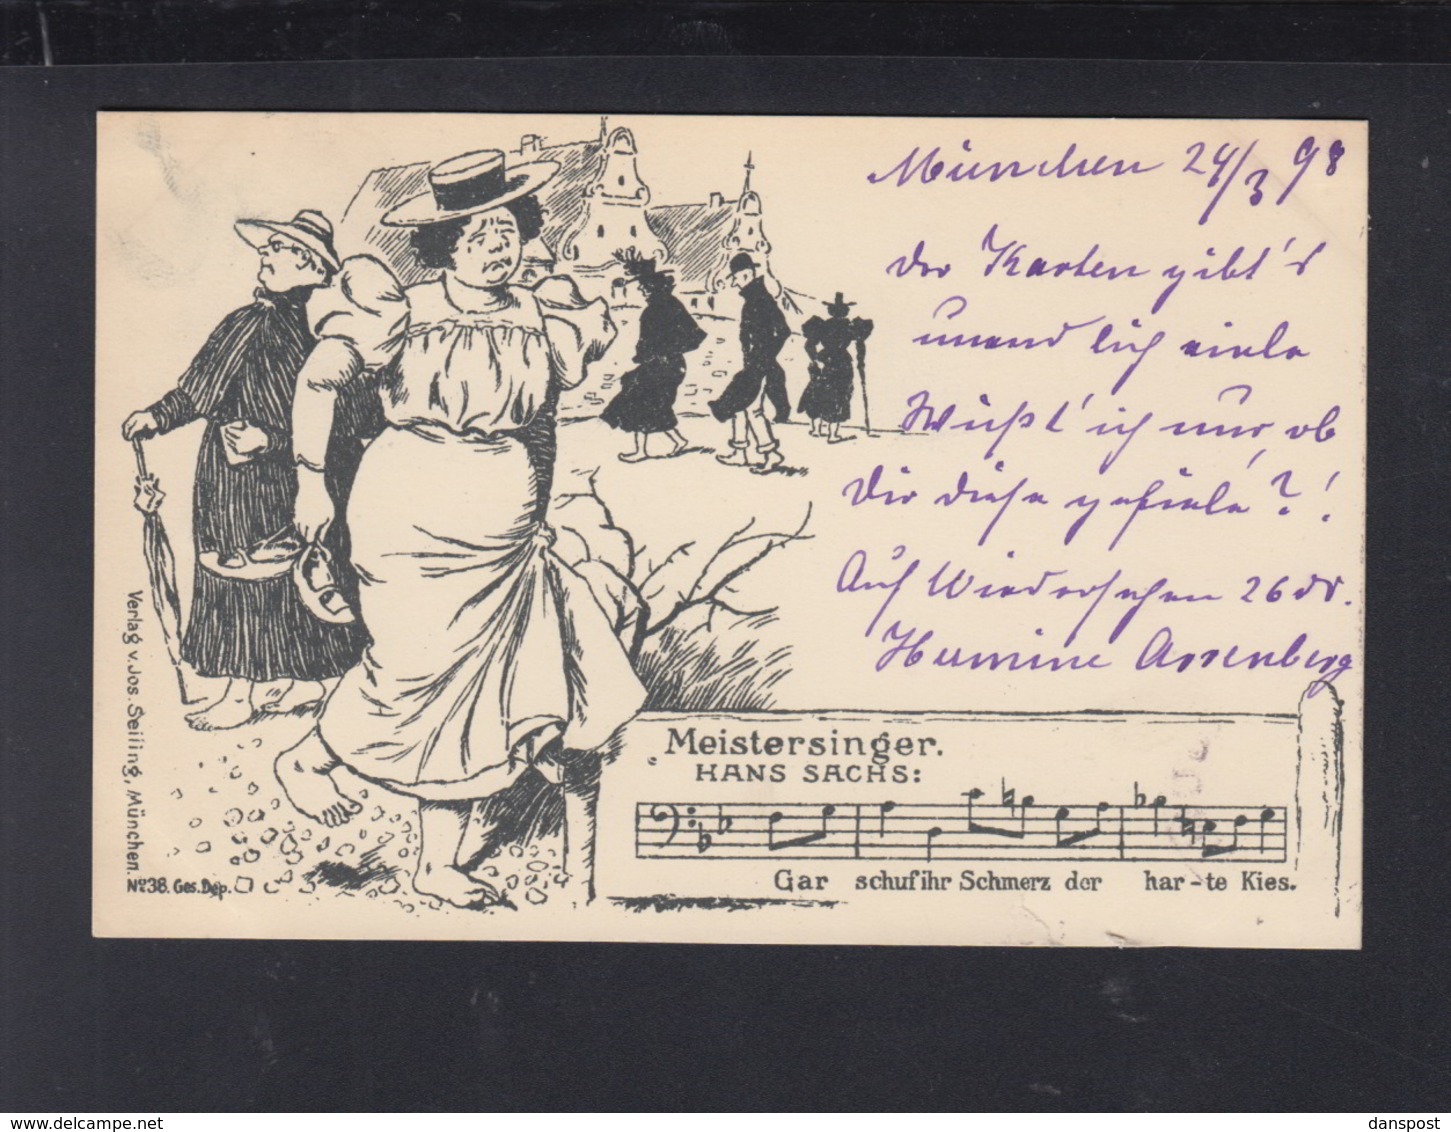 München 24/3 98
Der Karten gibt's
unendlich viele
Wüßt' ich nur, ob
Dir diese gefiele?!
Auf Wiedersehen 26
Hermine
Meistersinger.
HANS SACHS:
Gar schuf ihr Schmerz der har-te Kies.
Verlag v. Jos. Seiling, München.
No 38. Ges. Dep.
delcampe.net
danspost